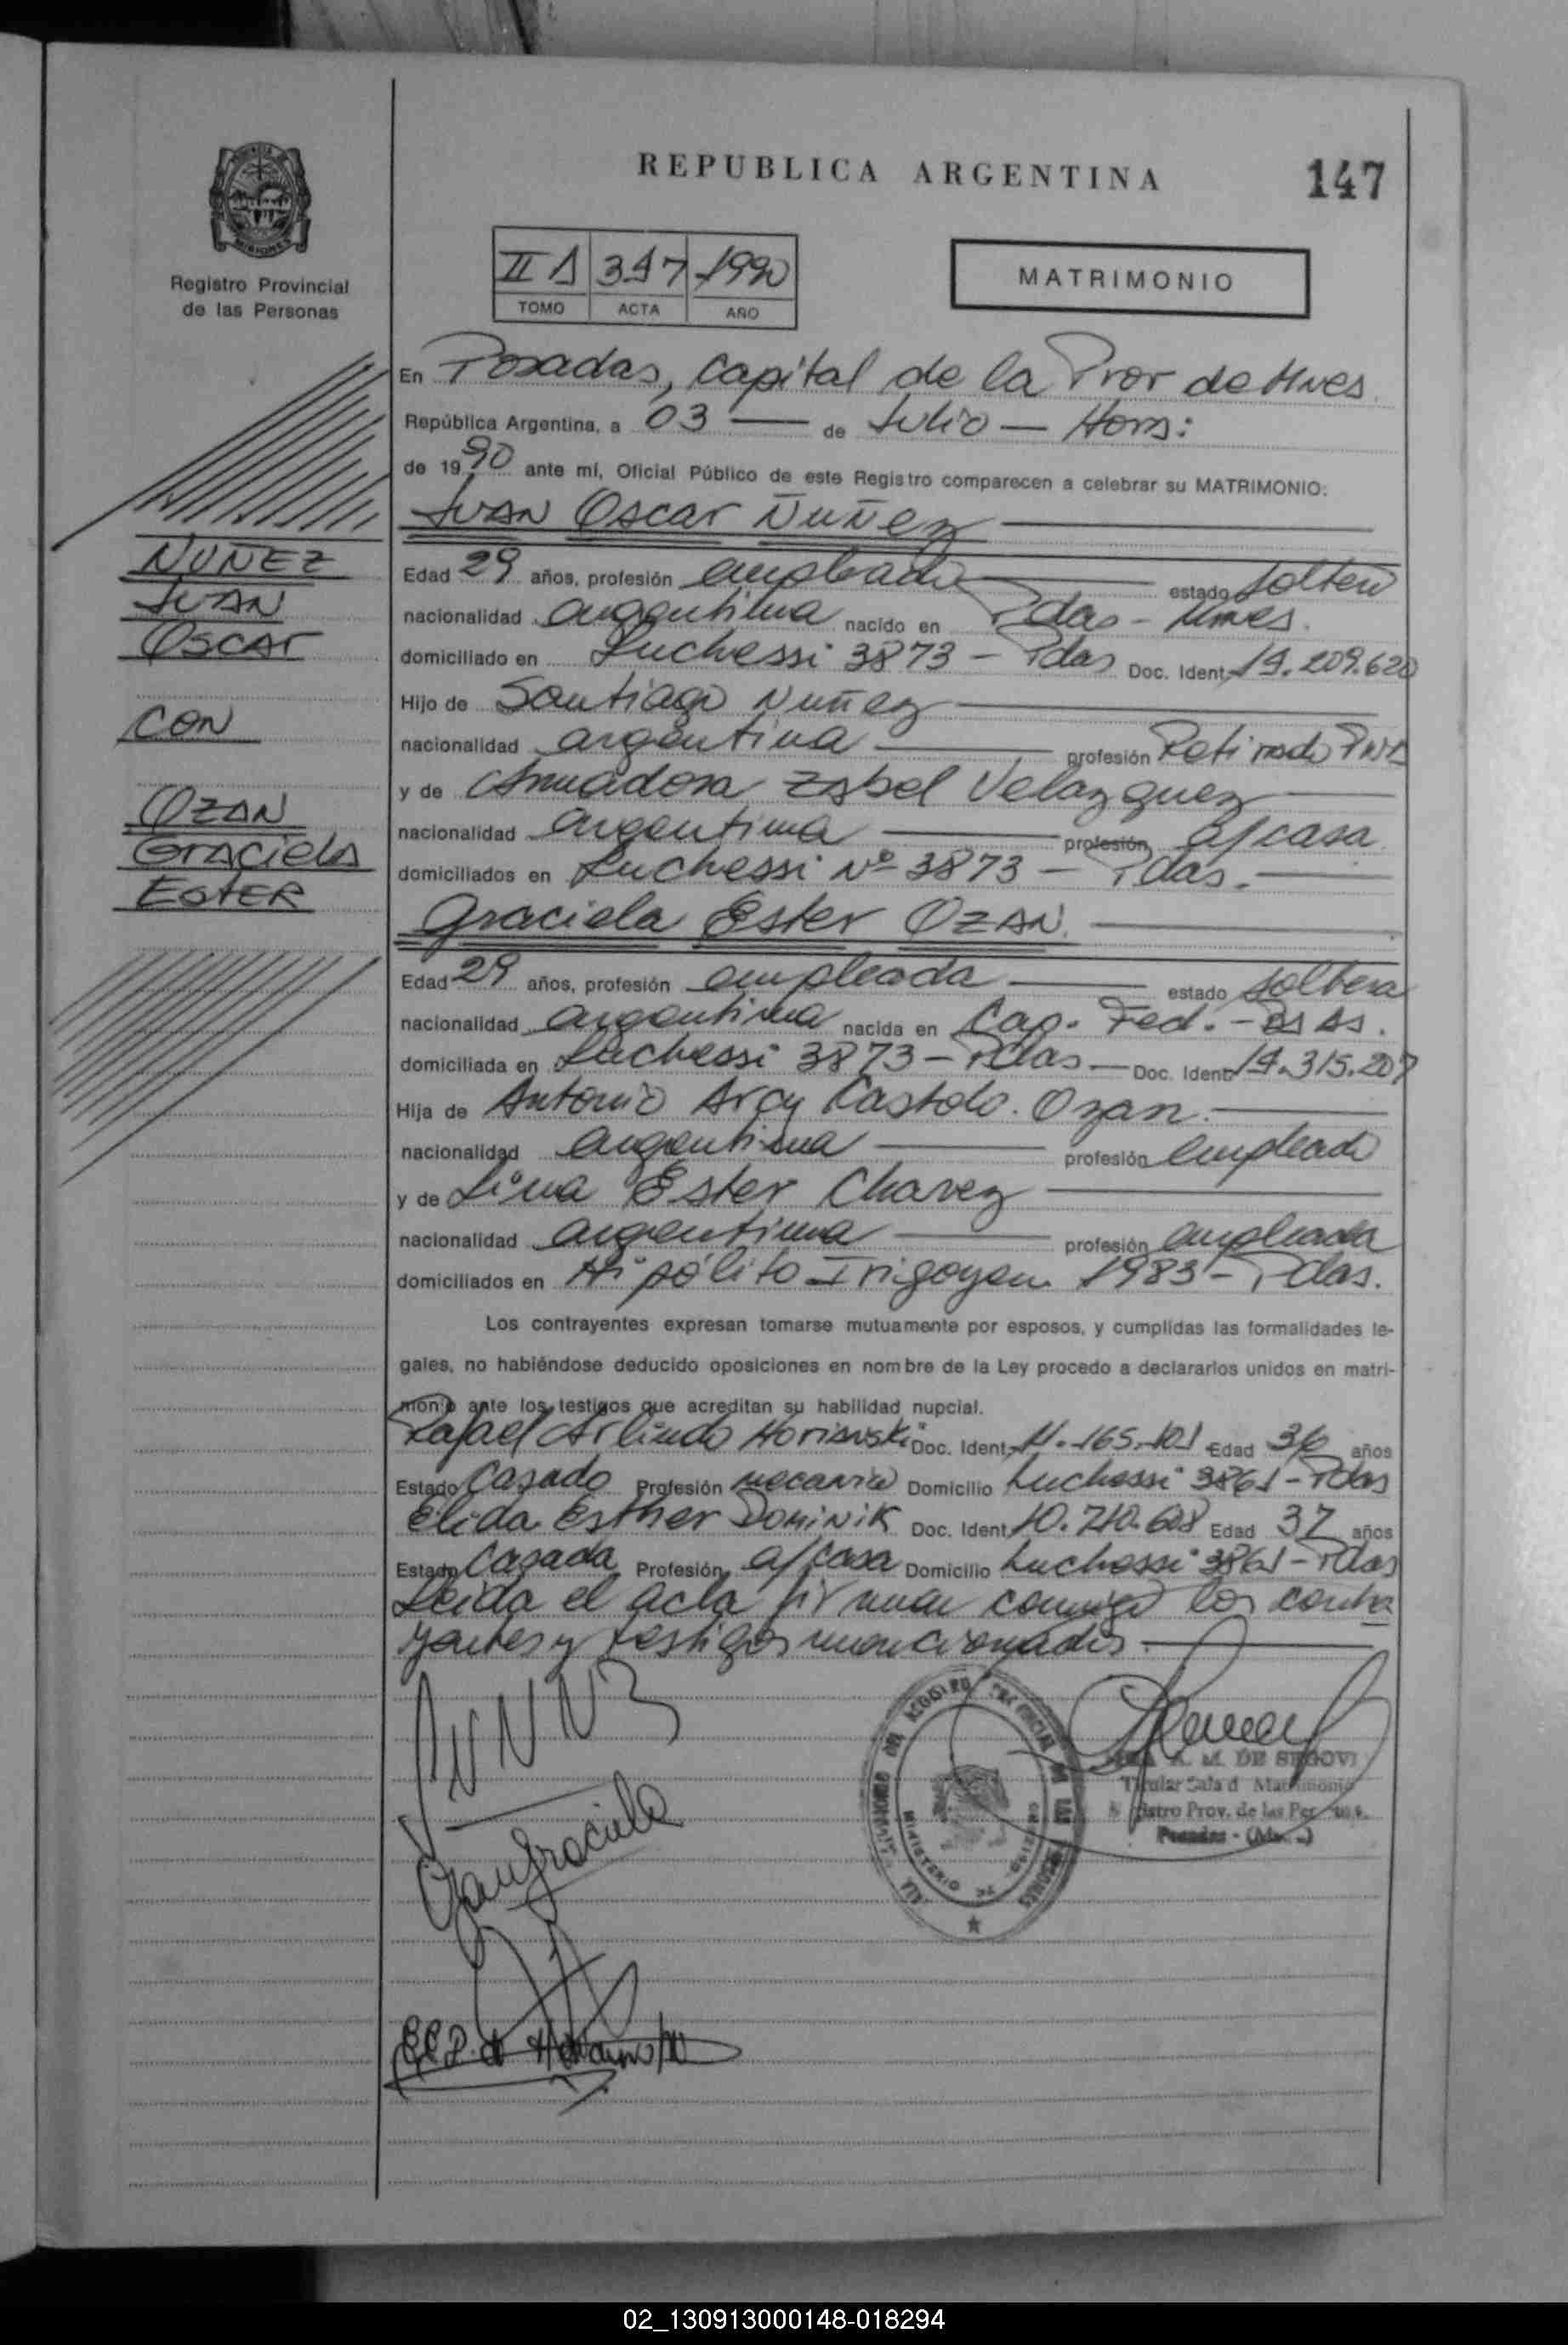 REPUBLICA ARGENTINA
147
PROVINCIA DE MISIONES
Registro Provincial
de las Personas
II A 347 1990
TOMO ACTA AÑO
MATRIMONIO
En Posadas, Capital de la Prov de Mnes
República Argentina, a 03 — de Julio — Hora:
de 1990 ante mí, Oficial Público de este Registro comparecen a celebrar su MATRIMONIO:
Juan Oscar Nuñez
NUÑEZ
JUAN
OSCAR
CON
OZAN
Graciela
ESTER
Edad 29 años, profesión empleado estado soltero
nacionalidad argentina nacido en Pdas - Mnes.
domiciliado en Luchessi 3873 - Pdas Doc. Ident. 14.209.620
Hijo de Santiago Nuñez
nacionalidad argentina profesión Retirado
y de Amadora Zabel Velazquez
nacionalidad argentina profesión a/casa
domiciliados en Luchessi Nº 3873 - Pdas.
Graciela Ester OZAN.
Edad 29 años, profesión empleada estado soltera
nacionalidad argentina nacida en Cap. Fed. - Bs As.
domiciliada en Luchessi 3873 - Pdas - Doc. Ident. 14.315.207
Hija de Antonio Arcy Castolo. Ozan.
nacionalidad argentina profesión empleado
y de Lina Ester Chavez
nacionalidad argentina profesión empleada
domiciliados en Hipólito Irigoyen 1983 - Pdas.
Los contrayentes expresan tomarse mutuamente por esposos, y cumplidas las formalidades le-
gales, no habiéndose deducido oposiciones en nombre de la Ley procedo a declararlos unidos en matri-
monio ante los testigos que acreditan su habilidad nupcial.
Rafael Arlindo Horisnski Doc. Ident. 11.165.101 Edad 36 años
Estado Casado Profesión mecanico Domicilio Luchessi 3861 - Pdas
Elida Esther Dominik Doc. Ident. 10.710.608 Edad 37 años
Estado Casada Profesión a/casa Domicilio Luchessi 3861 - Pdas
Leida el acta firman conmigo los contra
yentes y testigos mencionados.
A. M. DE SEGOVI
Titular Sala d Matrimonio
Registro Prov. de las Personas
Posadas - (Mnes.)
Ozan Graciela
02_130913000148-018294